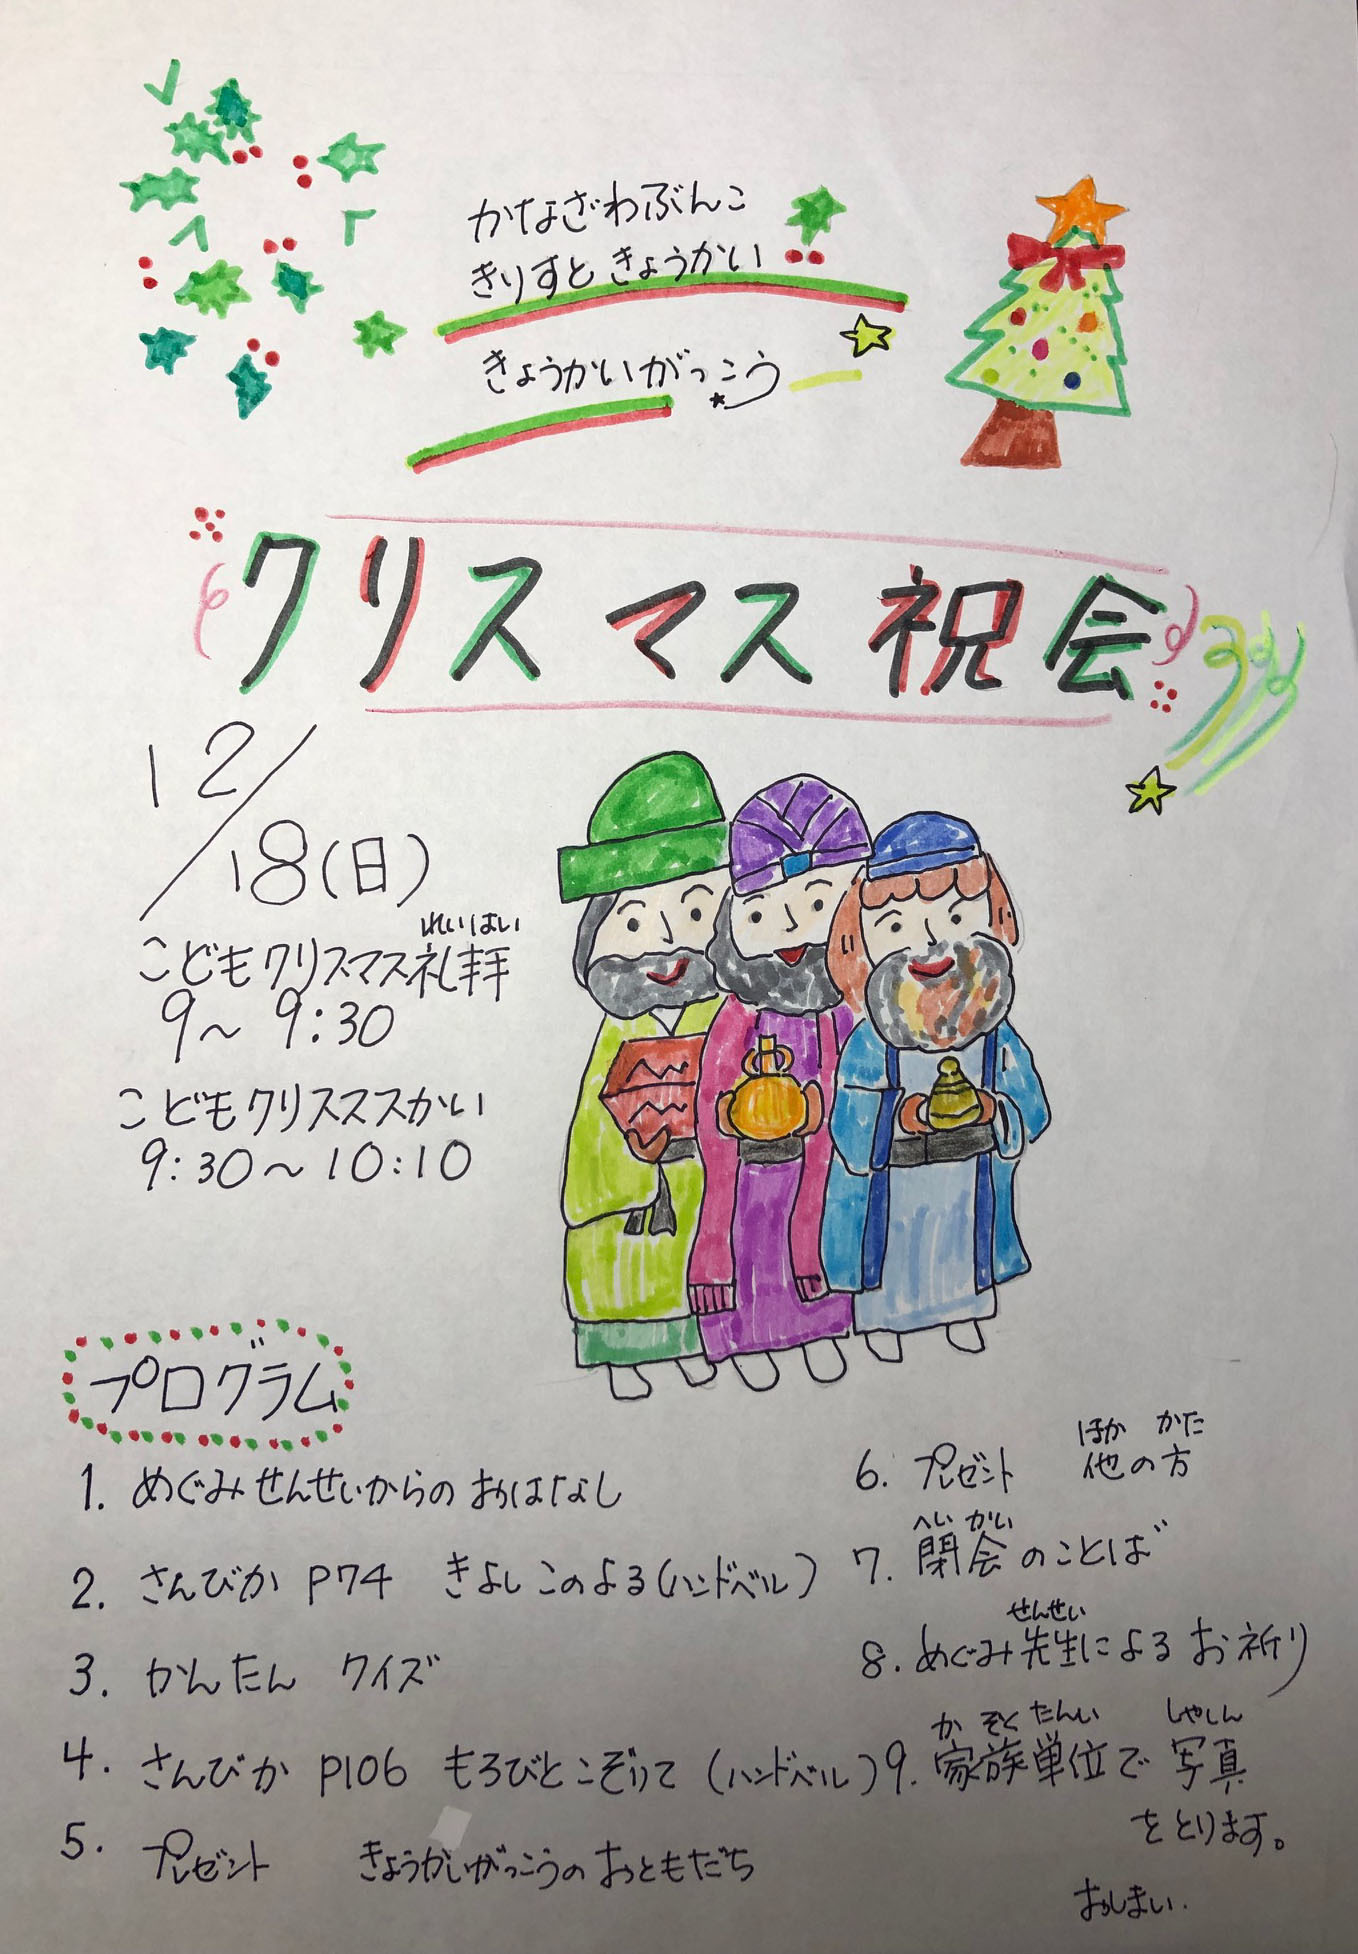 かなざわぶんこ
きりすと きょうかい
きょうかいがっこう
クリスマス祝会
12/18(日)
れいはい
こどもクリスマス礼拝
9〜 9:30
こどもクリスススかい
9:30〜10:10
プログラム
1. めぐみせんせいからの おはなし
2. さんびか P74 きよしこのよる(ハンドベル)
3. かんたん クイズ
4. さんびか P106 もろびとこぞりて (ハンドベル)
5. プレゼント きょうかいがっこうの おともだち
ほか かた
6. プレゼント 他の方
へい かい
7. 閉会のことば
せんせい
8. めぐみ先生による お祈り
か ぞく たんい しゃしん
9. 家族単位で 写真
をとります。
おしまい.